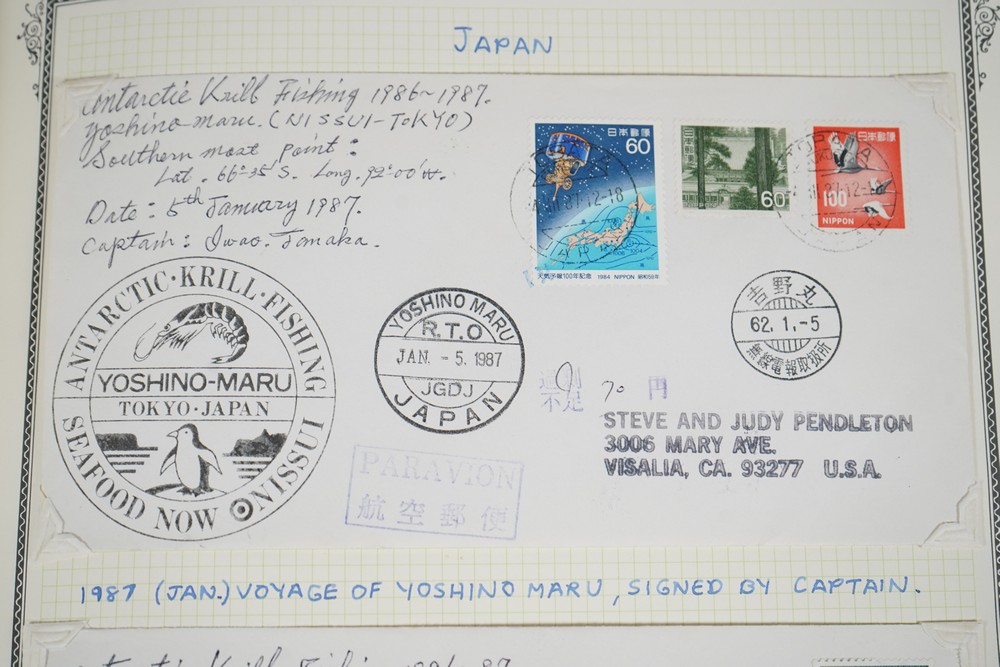 JAPAN
Antarctic Krill Fishing 1986~1987.
Yoshino-maru. (NISSUI-TOKYO)
Southern most point:
Lat. 66°35'S. Long. 92°00'W.
Date: 5th January 1987.
Captain: Iwao. Tanaka.
日本郵便
60
天気予報100年記念 1984 NIPPON 昭和59年
日本郵便
60
日本郵便
100
NIPPON
87.12-18
ANTARCTIC·KRILL·FISHING
YOSHINO-MARU
TOKYO·JAPAN
SEAFOOD NOW NISSUI
YOSHINO MARU
R.T.O
JAN. -5.1987
JGDJ
JAPAN
吉野丸
62.1.-5
無線電報取扱所
不足 70 円
STEVE AND JUDY PENDLETON
3006 MARY AVE.
VISALIA, CA. 93277 U.S.A.
PAR AVION
航空郵便
1987 (JAN.) VOYAGE OF YOSHINO MARU, SIGNED BY CAPTAIN.